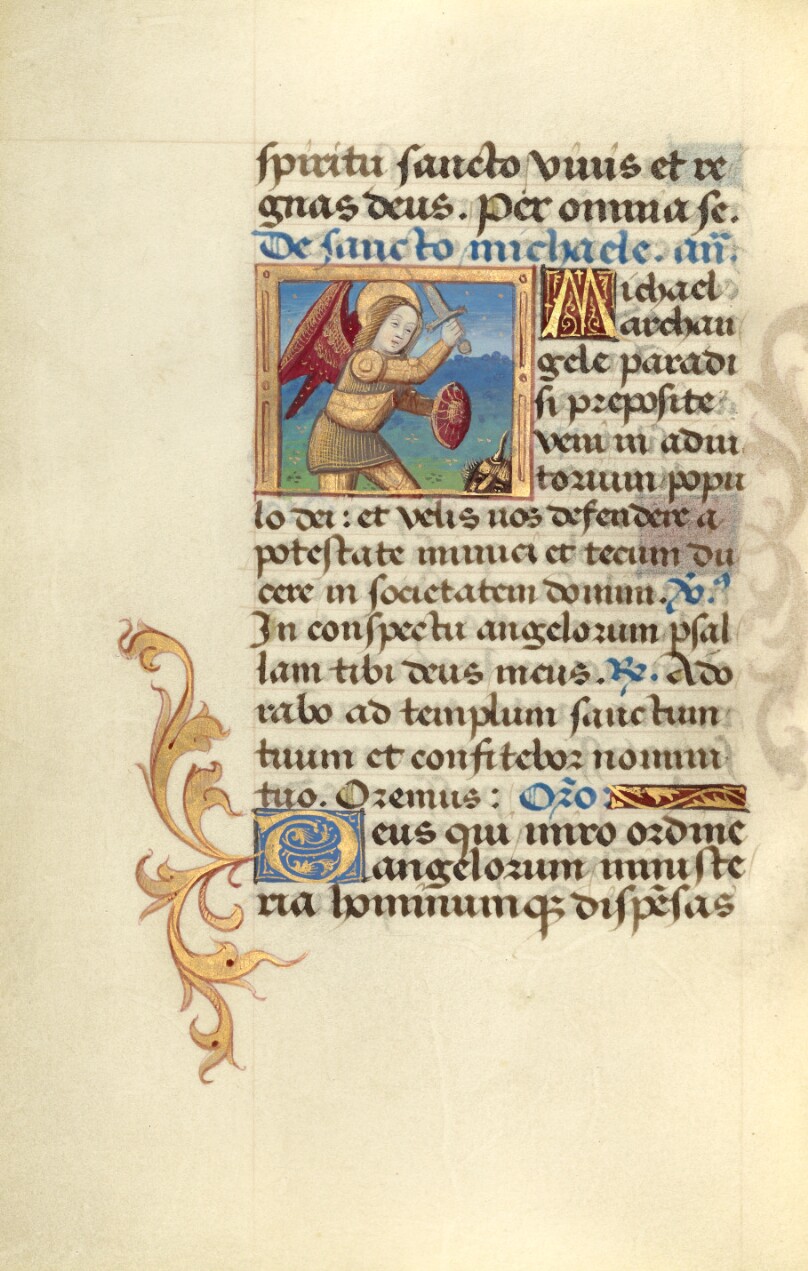 spiritu sancto viuis et re
gnas deus. Per omnia se.
De sancto michaele. an̄.
Michael
archan
gele paradi
si preposite
veni in adiu
torium popu
lo dei : et velis nos defendere a
potestate inimici et tecum du
cere in societatem domini. ℣.
In conspectu angelorum psal
lam tibi deus meus. ℟. Ado
rabo ad templum sanctum
tuum et confitebor nomini
tuo. Oremus : Or̄o
Deus qui miro ordine
angelorum ministe
ria hominumqꝫ dispēsas